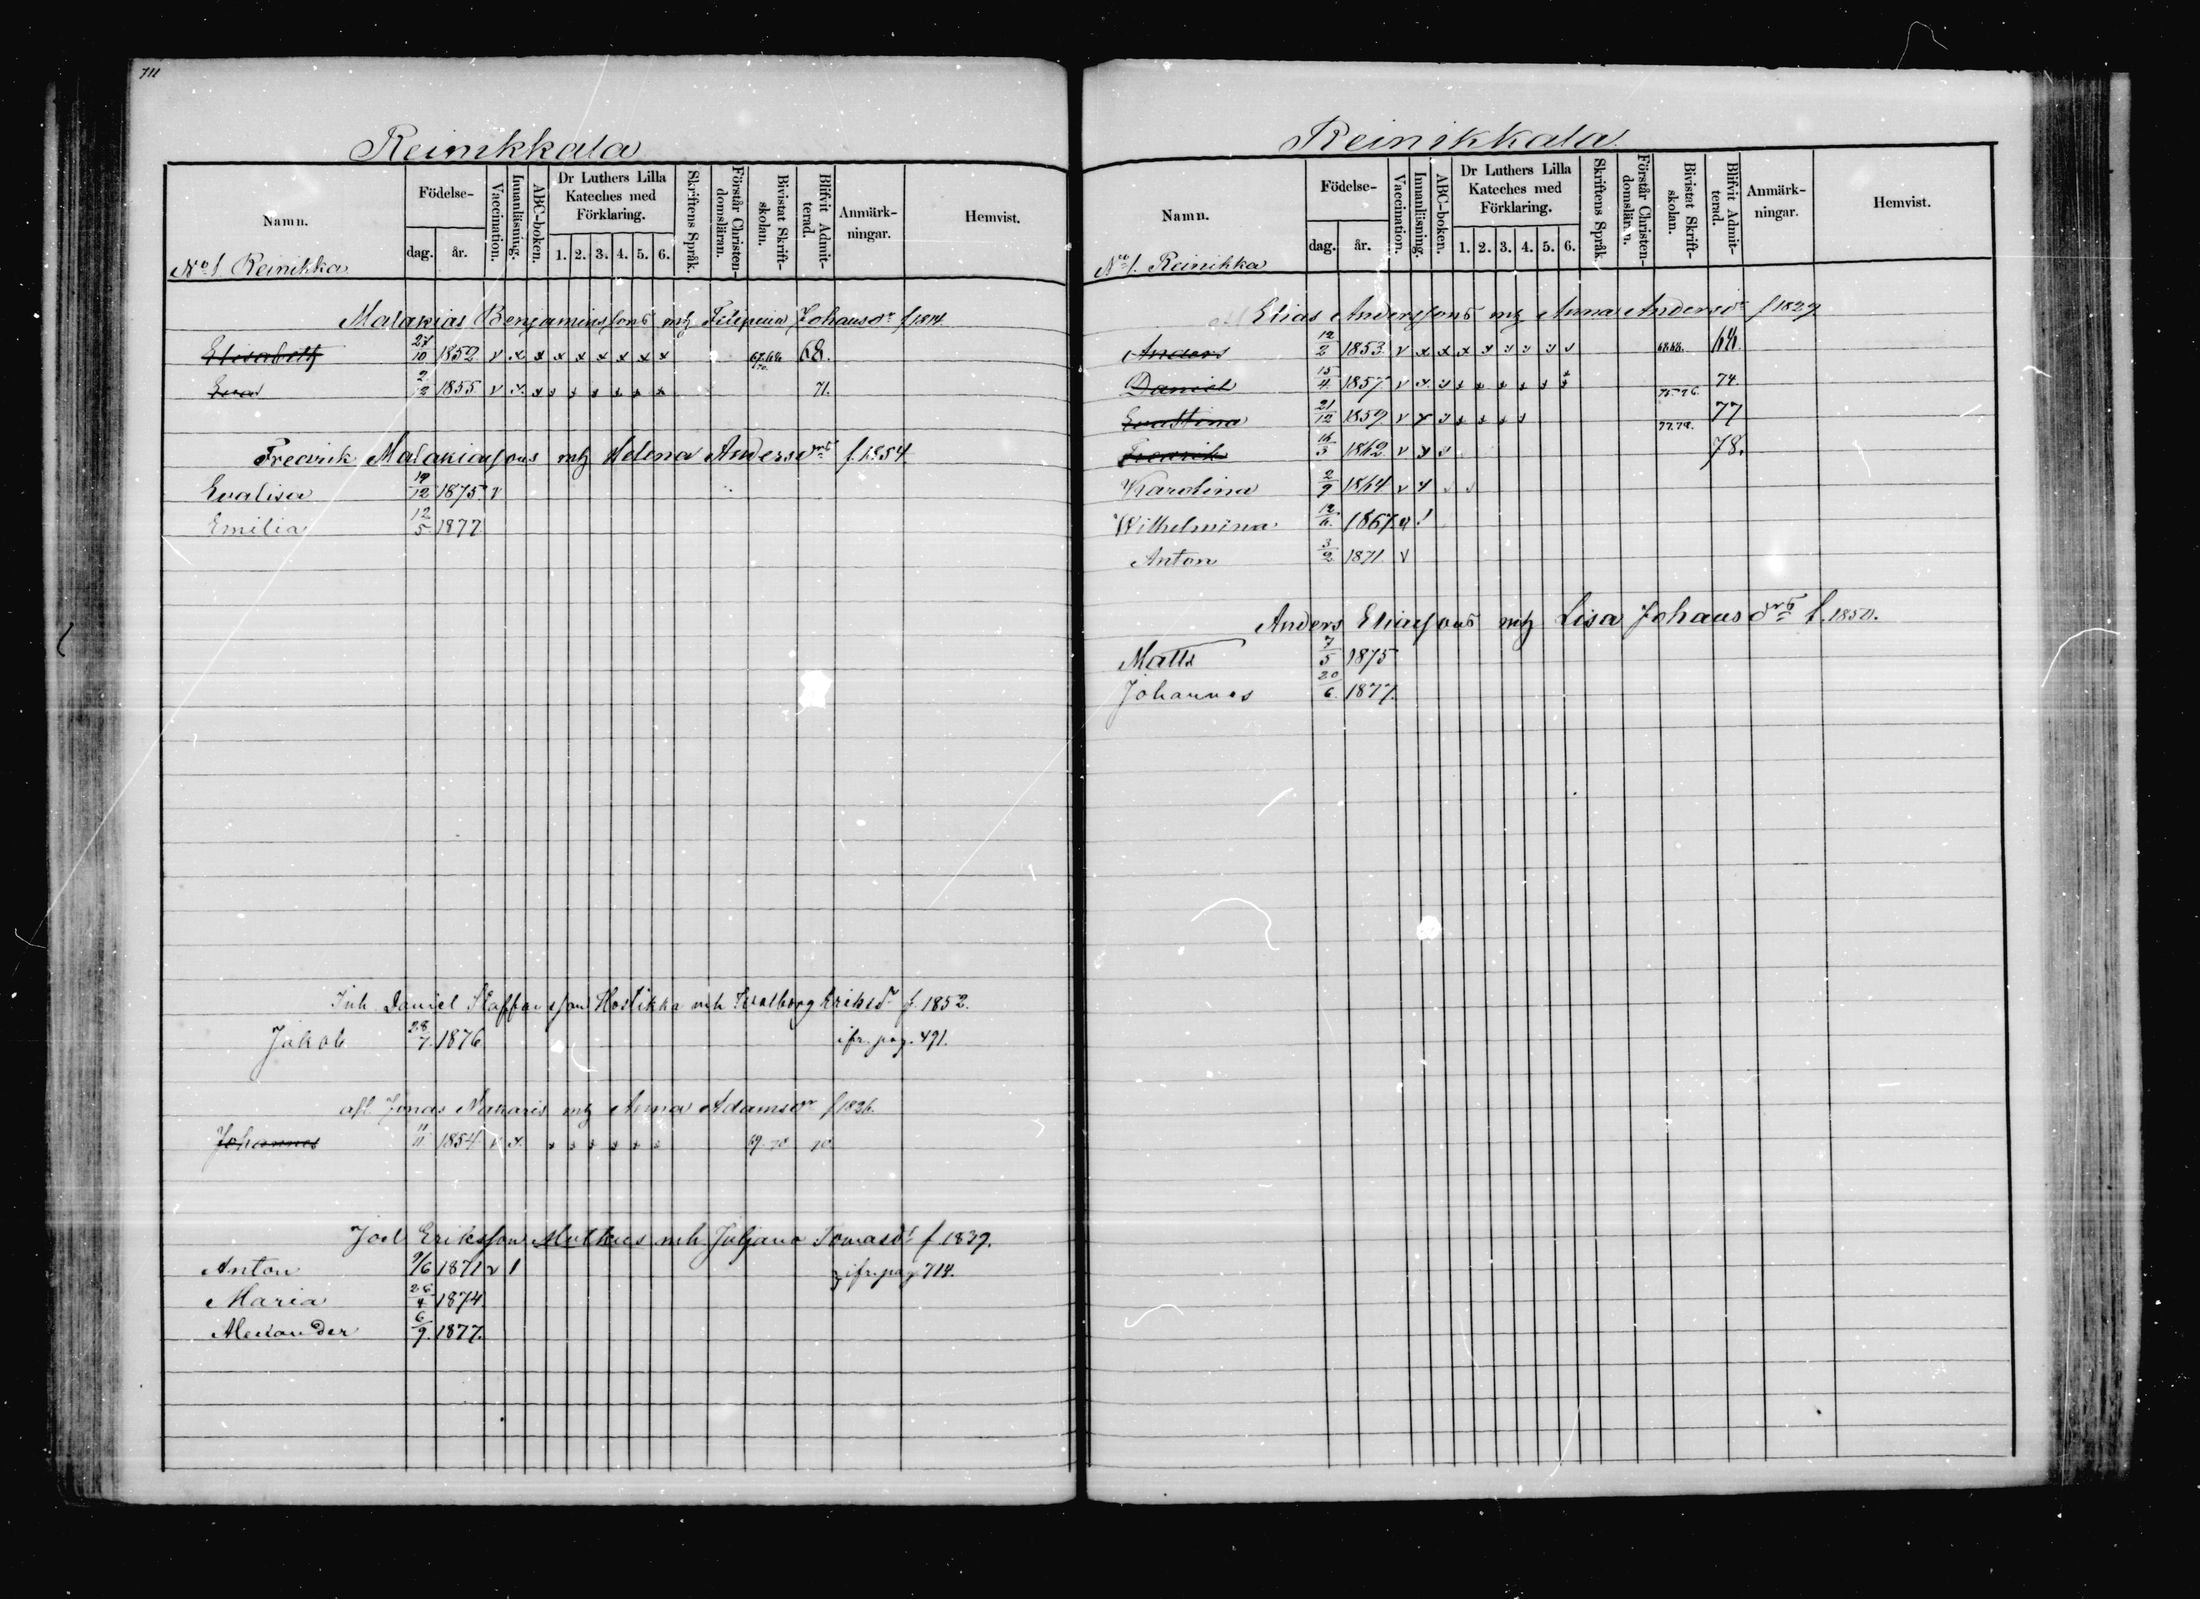 711
Reinikkala
Namn. Födelse- dag. år. Vaccination. Innanläsning. ABC-boken. Dr Luthers Lilla Kateches med Förklaring. 1. 2. 3. 4. 5. 6. Skriftens Språk. Förstår Christendomsläran. Bivistat Skriftskolan. Blifvit Admitterad. Anmärkningar. Hemvist.
No 1 Reinikka
Malakias Benjaminssons mh Johansdr f 1814.
Elisabeth 27/10 1852 v x x x x x x x x 68.
Eva 2/12 1855 v x x x x x x x x 71.
Fredrik Malakiassons mh Helena Andersdrs f 1854
Evalisa 19/12 1875 v
Emilia 12/5 1877
Inh Daniel Staffansson Hostikka mh Walborg Eriksdr f 1852.
Jakob 28/7. 1876 ifr. pag. 491.
afl Jonas mh Anna Adamsdr f 1826.
Johannes 11/11 1854 v x x x x x x x 69. 70 70
Joel Eriksson Mutkus mh Juljana Tomasdr f 1839.
Anton 9/6 1871 v 1 ifr. pag 714.
Maria 26/4 1874
Alexander 6/9. 1877.
Reinikkala
Namn. Födelse- dag. år. Vaccination. Innanläsning. ABC-boken. Dr Luthers Lilla Kateches med Förklaring. 1. 2. 3. 4. 5. 6. Skriftens Språk. Förstår Christendomsläran. Bivistat Skriftskolan. Blifvit Admitterad. Anmärkningar. Hemvist.
No 1. Reinikka
Elias Anderssons mh Anna Andersdr f 1827
Anders 12/2 1853 v x x x x x x x x 68.
Daniel 15/4 1857 v x x x x x x x x 75.76. 74.
Evastina 21/12 1859 v x x x x x x 77.78. 77
Fredrik 16/3 1862 v x x 78.
Karolina 2/9 1864 v x
Wilhelmina 12/6. 1867
Anton 3/2 1871. v
Anders Eliassons mh Lisa Johansdrs f. 1850.
Matts 7/5 1875
Johannes 20/6. 1877.